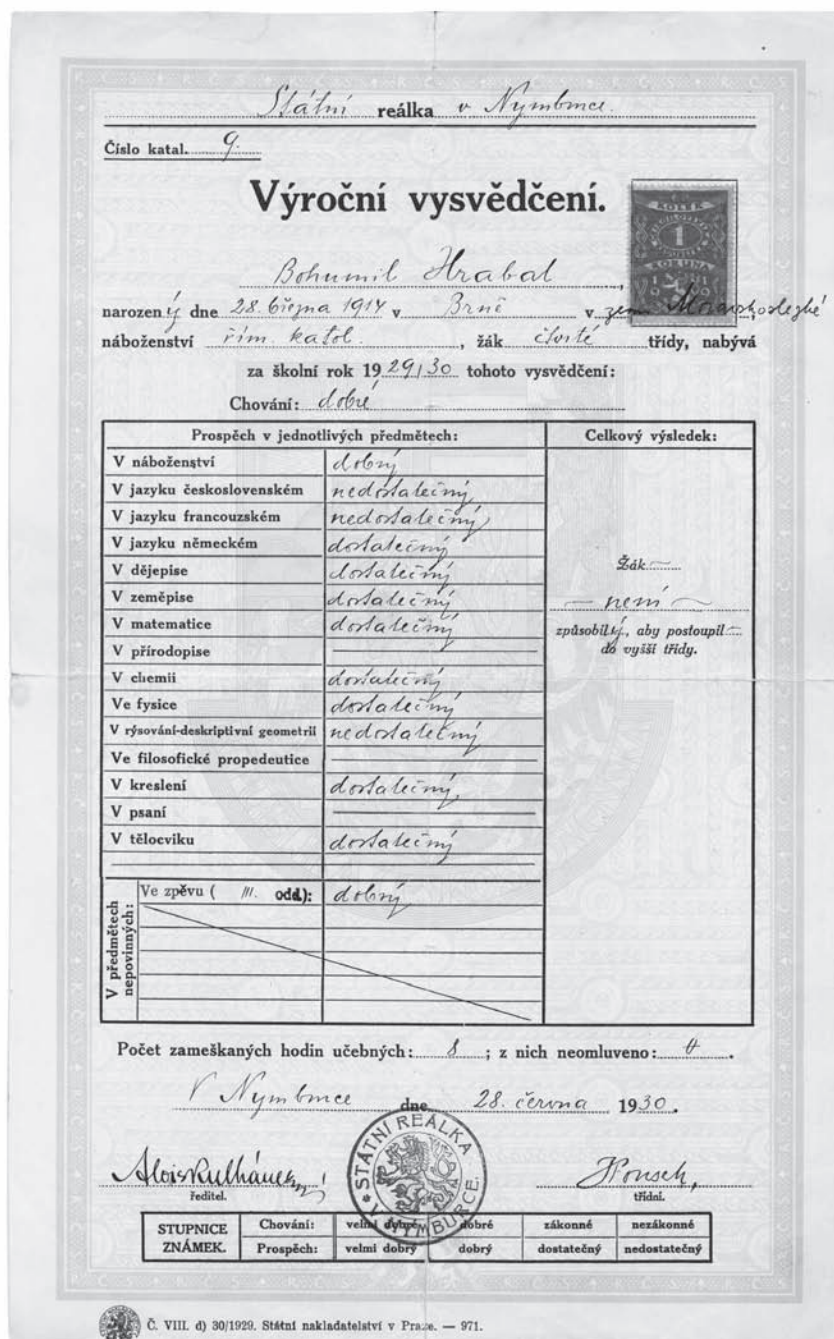 Státní reálka v Nymburce.
Číslo katal. 9.
Výroční vysvědčení.
KOLEK
1
KORUNA
Bohumil Hrabal,
narozený dne 28. března 1914 v Brně v zemi Moravskoslezské,
náboženství řím. katol., žák čtvrté třídy, nabývá
za školní rok 1929/30 tohoto vysvědčení:
Chování: dobré
Prospěch v jednotlivých předmětech: Celkový výsledek:
V náboženství dobrý
V jazyku československém nedostatečný
V jazyku francouzském nedostatečný
V jazyku německém dostatečný
V dějepise dostatečný
V zeměpise dostatečný
V matematice dostatečný
V přírodopise
V chemii dostatečný
Ve fysice dostatečný
V rýsování-deskriptivní geometrii nedostatečný
Ve filosofické propedeutice
V kreslení dostatečný
V psaní
V tělocviku dostatečný
Žák
není
způsobilý, aby postoupil
do vyšší třídy.
V předmětech nepovinných:
Ve zpěvu ( III. odd.): dobrý
Počet zameškaných hodin učebných: 8 ; z nich neomluveno: 0.
V Nymburce dne 28. června 1930.
STÁTNÍ REÁLKA V NYMBURCE.
Alois Kulhánek
ředitel. třídní.
STUPNICE ZNÁMEK. Chování: velmi dobré dobré zákonné nezákonné
Prospěch: velmi dobrý dobrý dostatečný nedostatečný
Č. VIII. d) 30/1929. Státní nakladatelství v Praze. — 971.